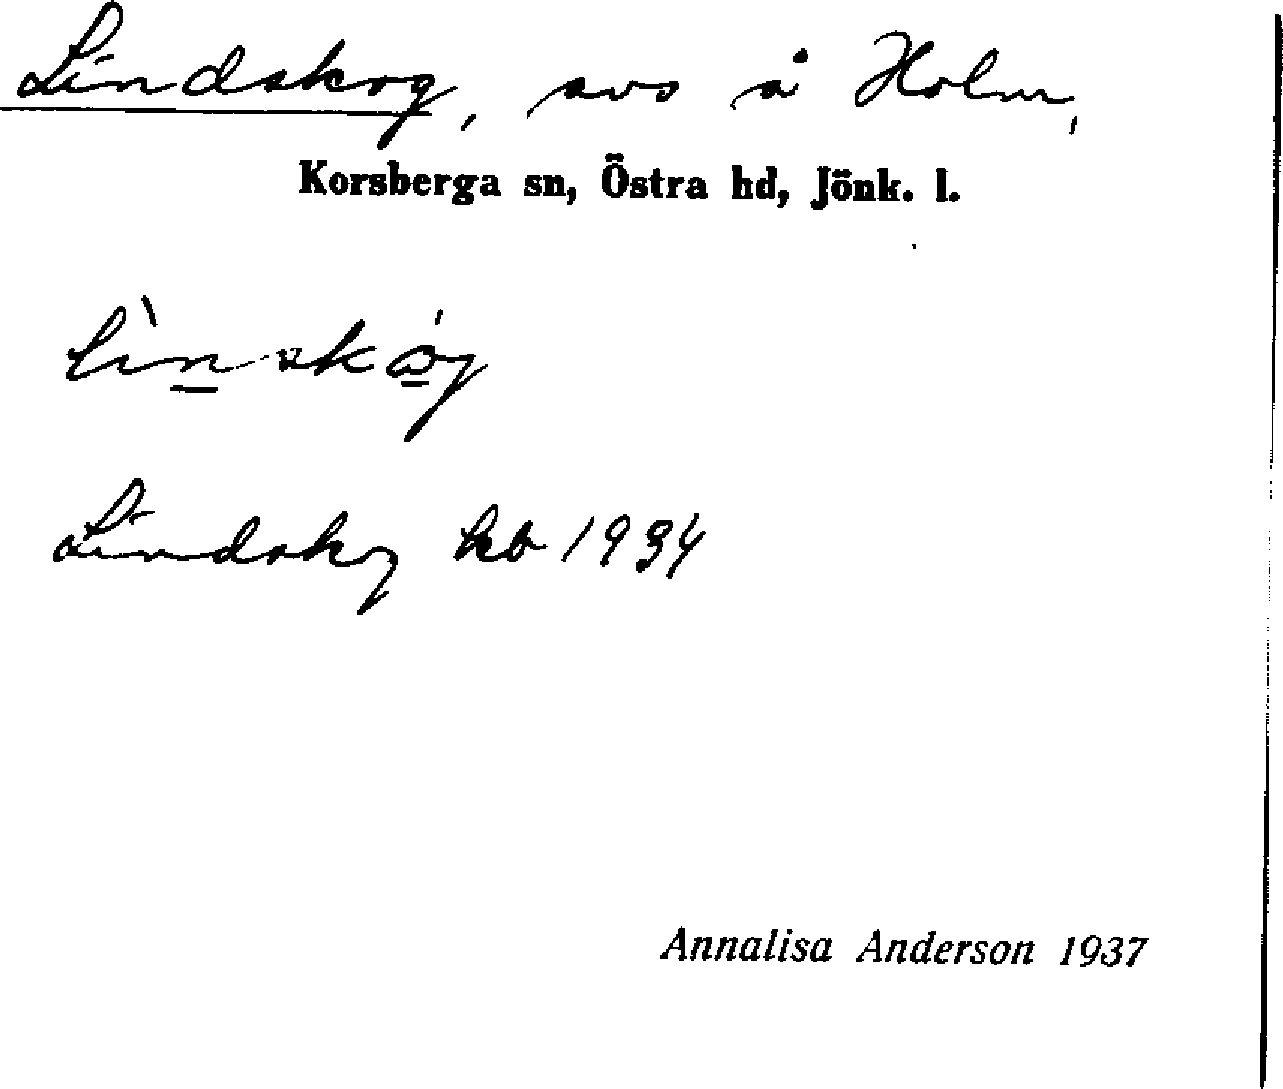 Lindskog, avs å Holm,
Korsberga sn, Östra hd, Jönk. l.
lìnskóg
Lindskog kb 1934
Annalisa Anderson 1937